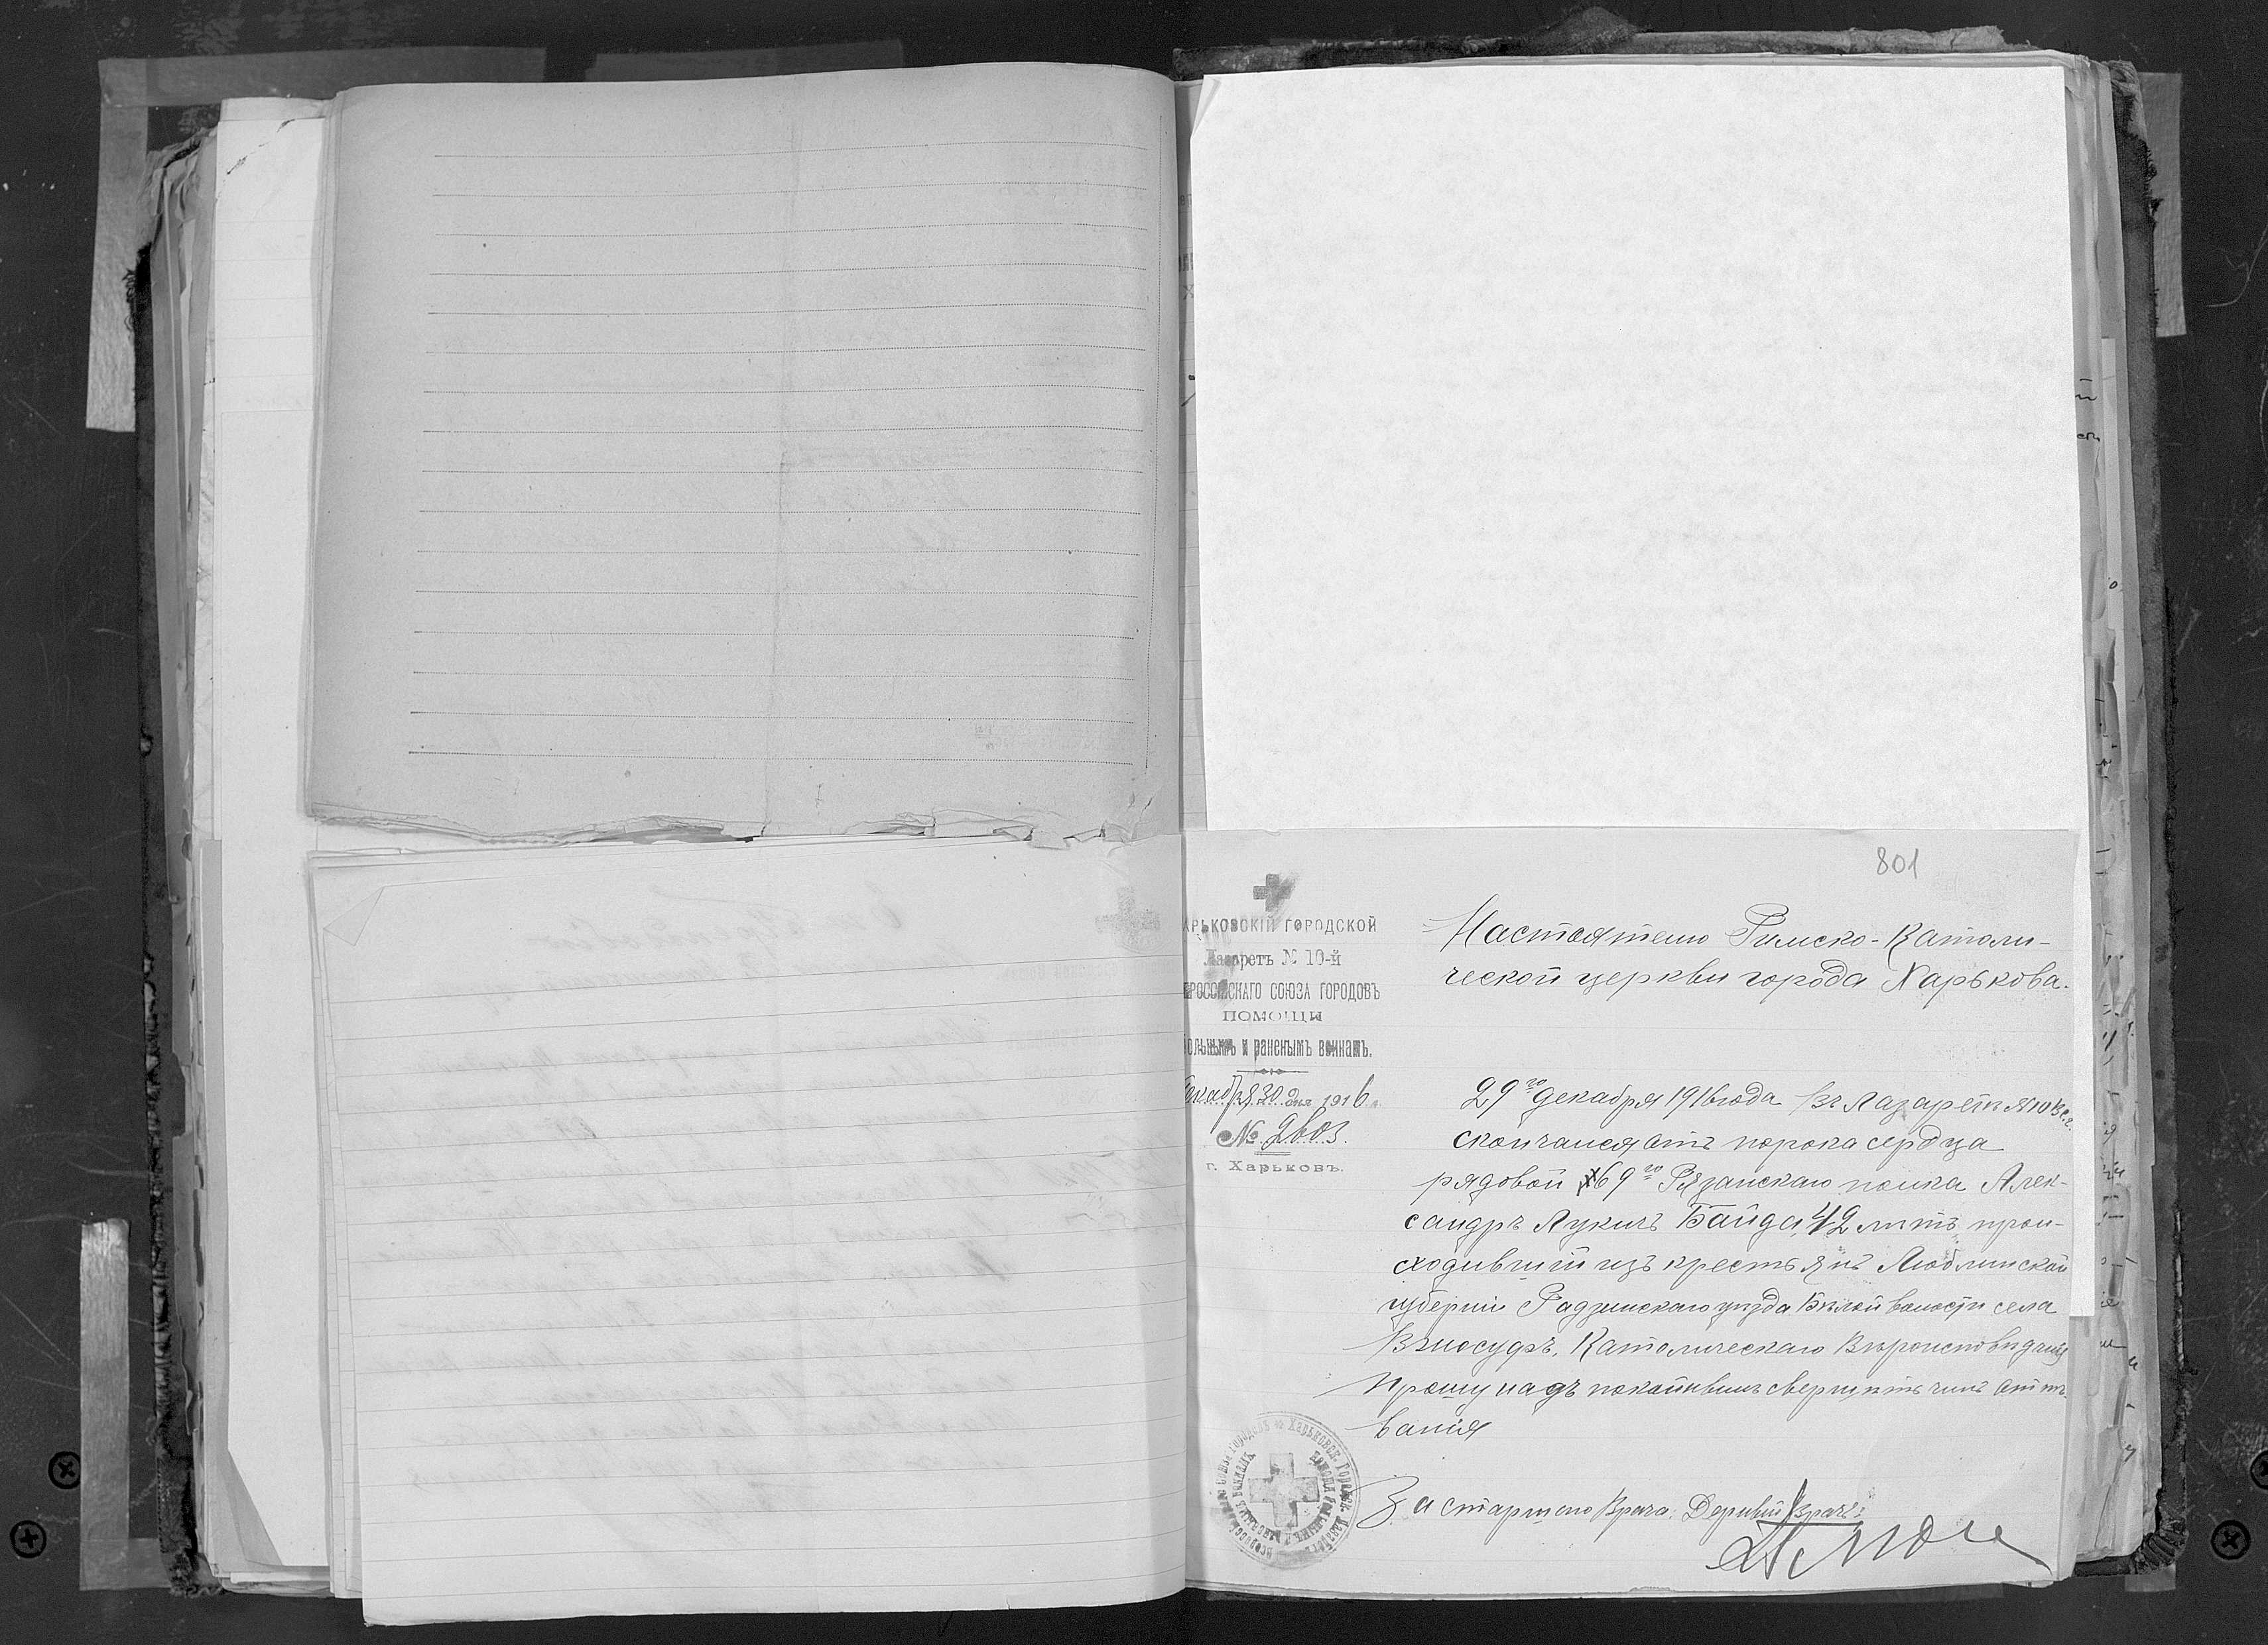 801
АРЬКОВСКІЙ ГОРОДСКОЙ
Лазаретъ № 10-й
РОССІЙСКАГО СОЮЗА ГОРОДОВЪ
ПОМОЩИ
ольнымъ и раненымъ воинамъ.
екабря 30 дня 1916 г.
№ 2603.
г. Харьковъ.
Настоятелю Римско-Католи-
ческой церкви города Харькова.
29го декабря 1916 года въ Лазаретѣ №10 В.С.Г.
скончался отъ порока сердца
рядовой 69го Рязанскаго полка Алек-
сандръ Лукичъ Байда, 42 лѣтъ, прои-
сходившій изъ крестьянъ Люблинской
губерніи Радзинскаго уѣзда Бѣлой волости села
Католическаго Вѣроисповѣданія
Прошу надъ покойнымъ свершить чинъ отпѣ-
ванія
За старшаго Врача: Врачъ:
Харьковск. Городск. Лазаретъ